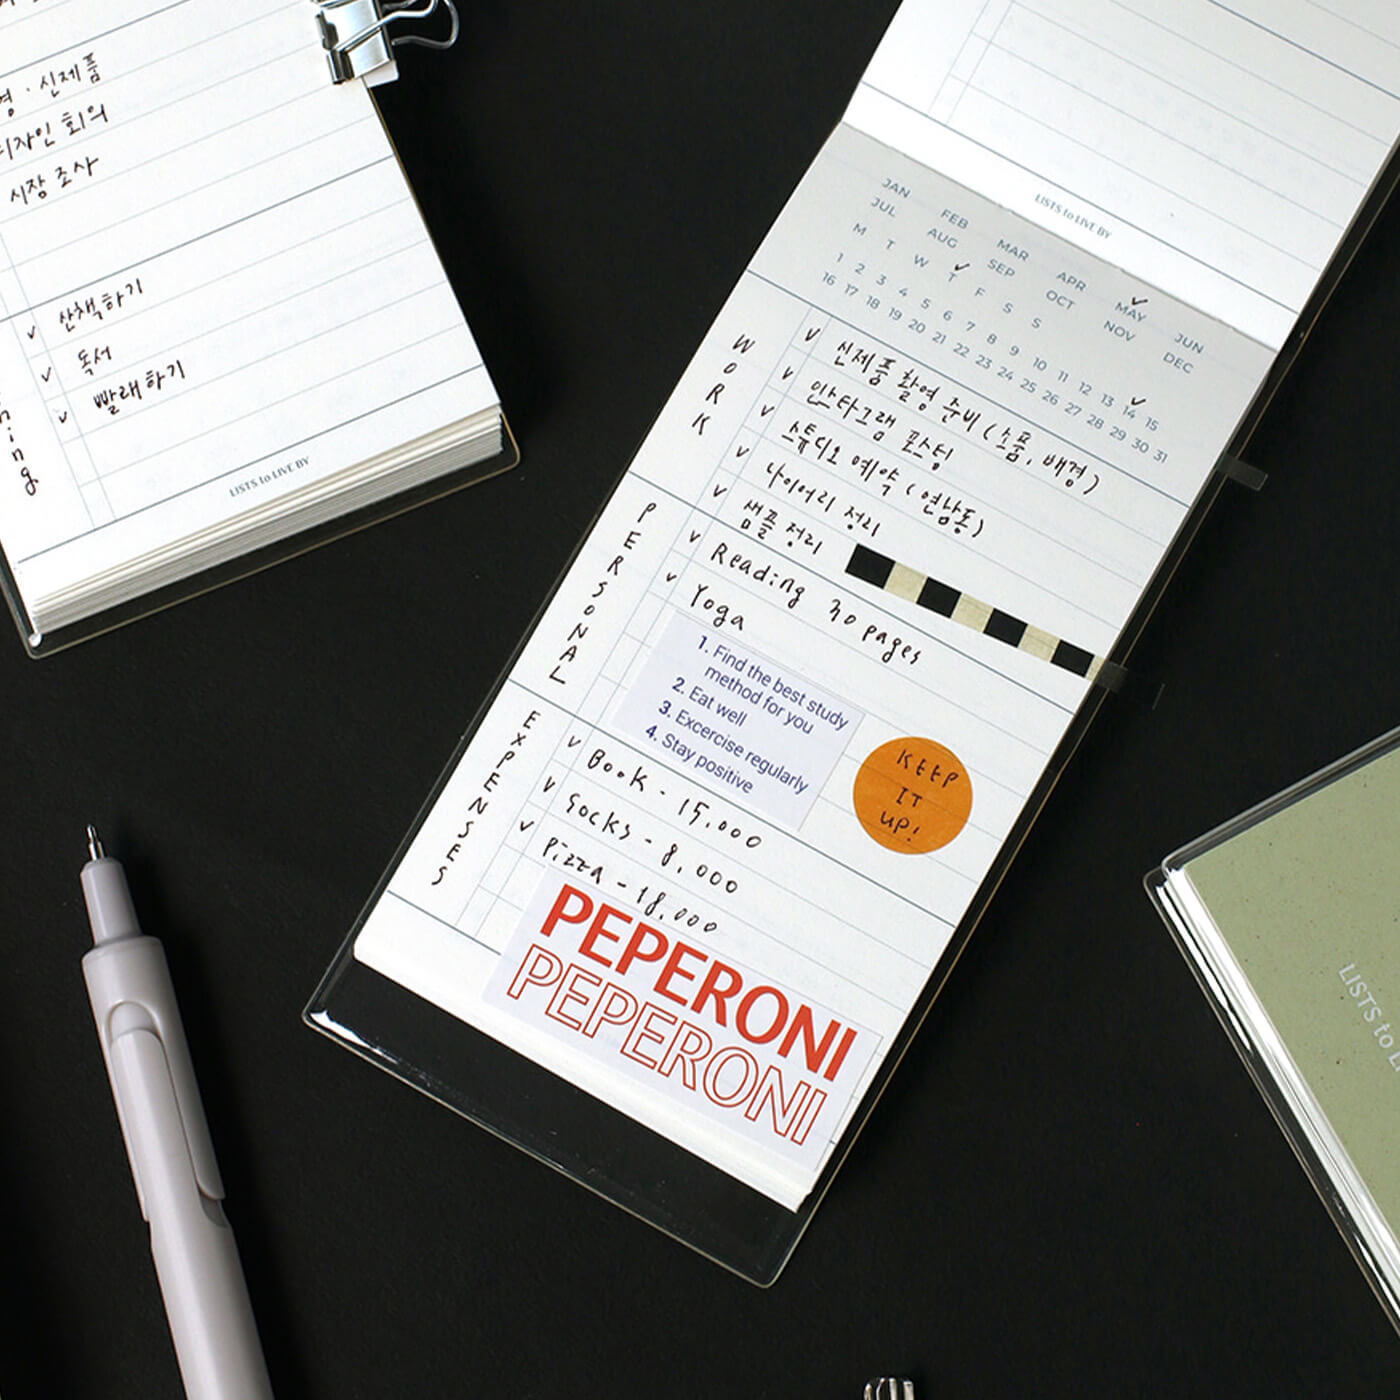 신제품
디자인 회의
시장 조사
산책하기
독서
빨래하기
LISTS to LIVE BY
LISTS to LIVE BY
JAN FEB MAR APR MAY JUN
JUL AUG SEP OCT NOV DEC
M T W T F S S
1 2 3 4 5 6 7 8 9 10 11 12 13 14 15
16 17 18 19 20 21 22 23 24 25 26 27 28 29 30 31
WORK
신제품 촬영 준비 (소품, 배경)
인스타그램 포스팅
스튜디오 예약 (연남동)
다이어리 정리
샘플 정리
PERSONAL
Reading 30 pages
Yoga
1. Find the best study
method for you
2. Eat well
3. Excercise regularly
4. Stay positive
KEEP
IT
UP!
EXPENSES
Book - 15.000
Socks - 8,000
Pizza - 18.000
PEPERONI
PEPERONI
LISTS to